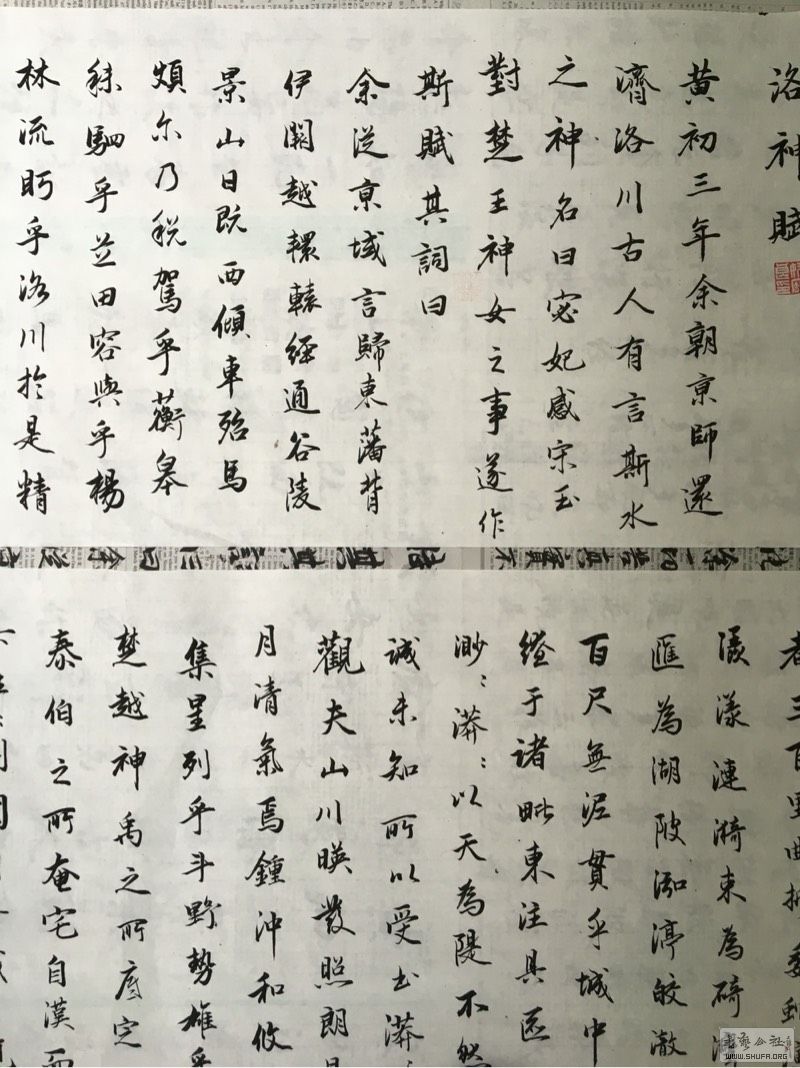 洛神賦
黄初三年余朝京師還
濟洛川古人有言斯水
之神名曰宓妃感宋玉
對楚王神女之事遂作
斯賦其詞曰
余從京域言歸東藩背
伊闕越轘轅經通谷陵
景山日既西傾車殆馬
煩尔乃稅駕乎蘅皋
秣駟乎芝田容與乎楊
林流眄乎洛川於是精
者三百里曲折委
漾漣漪束為碕
匯為湖陂泓渟皎澈
百尺無泥貫乎城中
纒于諸毗東注具區
渺:漭:以天為隄不然
誠未知所以受也漭:
觀夫山川暎發照朗
月清氣焉鍾沖和攸
集星列乎斗野勢雄乎
楚越神禹之所底定
泰伯之所奄宅自漢而
書藝公社
WWW.SHUFA.ORG